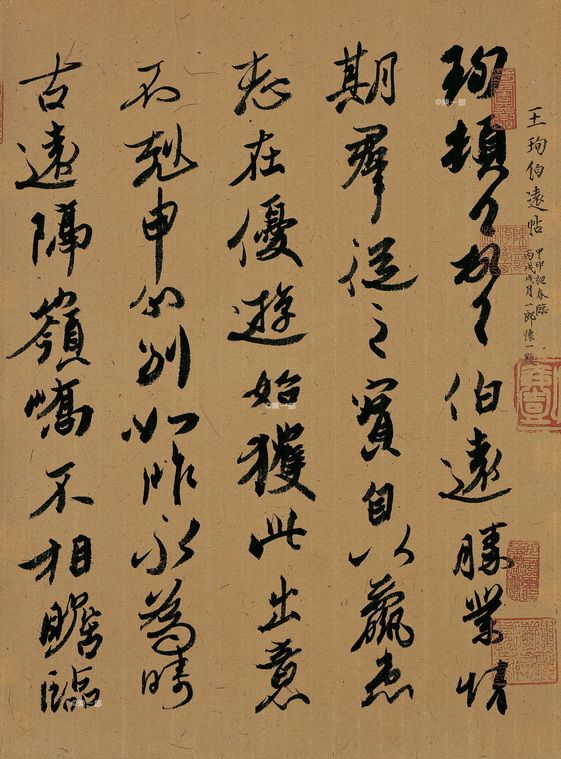 王珣伯遠帖
珣頓首頓首伯遠勝業情
期羣從之寶自以羸患
志在優遊始獲此出意
不剋申分別如昨永為疇
古遠隔嶺嶠不相瞻臨
©陳一郎
©陳一郎
©陳一郎